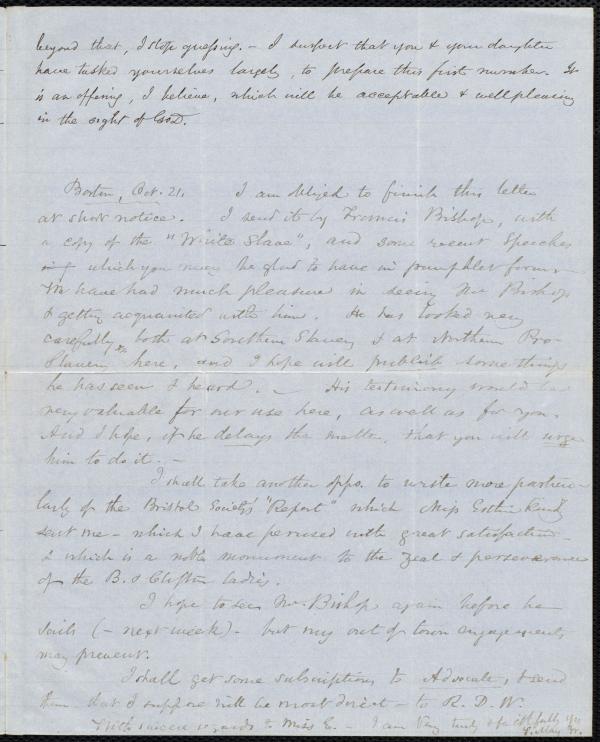 beyond that, I stop guessing. – I suspect that you & your daughter
have tasked yourselves largely, to prepare this first number. It
is an offering, I believe, which will be acceptable & wellpleasing
in the sight of GOD.
Boston, Oct. 21. I am obliged to finish this letter
at short notice. I send it by Francis Bishop, with
a copy of the "White Slave", and some recent Speeches
which you may be glad to have in pamphlet form. –
We have had much pleasure in seeing Mr. Bishop
& getting acquainted with him. He has looked very
carefully, both at Southern Slavery & at Northern Pro-
Slavery here, and I hope will publish some things
he has seen & heard. – His testimony would be
very valuable for our use here, as well as for you.
And I hope, if he delays the matter, that you will urge
him to do it. –
I shall take another oppo. to write more particu-
larly of the Bristol Society's "Report" which Miss Esther
sent me – which I have perused with great satisfaction –
& which is a noble monument to the zeal & perseverance
of the B. & Clifton ladies.
I hope to see Mr. Bishop again before he
sails (– next week) – but my out of town engagements
may prevent.
I shall get some subscriptions to Advocate, & send
them that I suppose will be most direct – to R. D. W.
With sincere regards to Miss E. – I am very truly & faithfully yrs
S. May Jr.